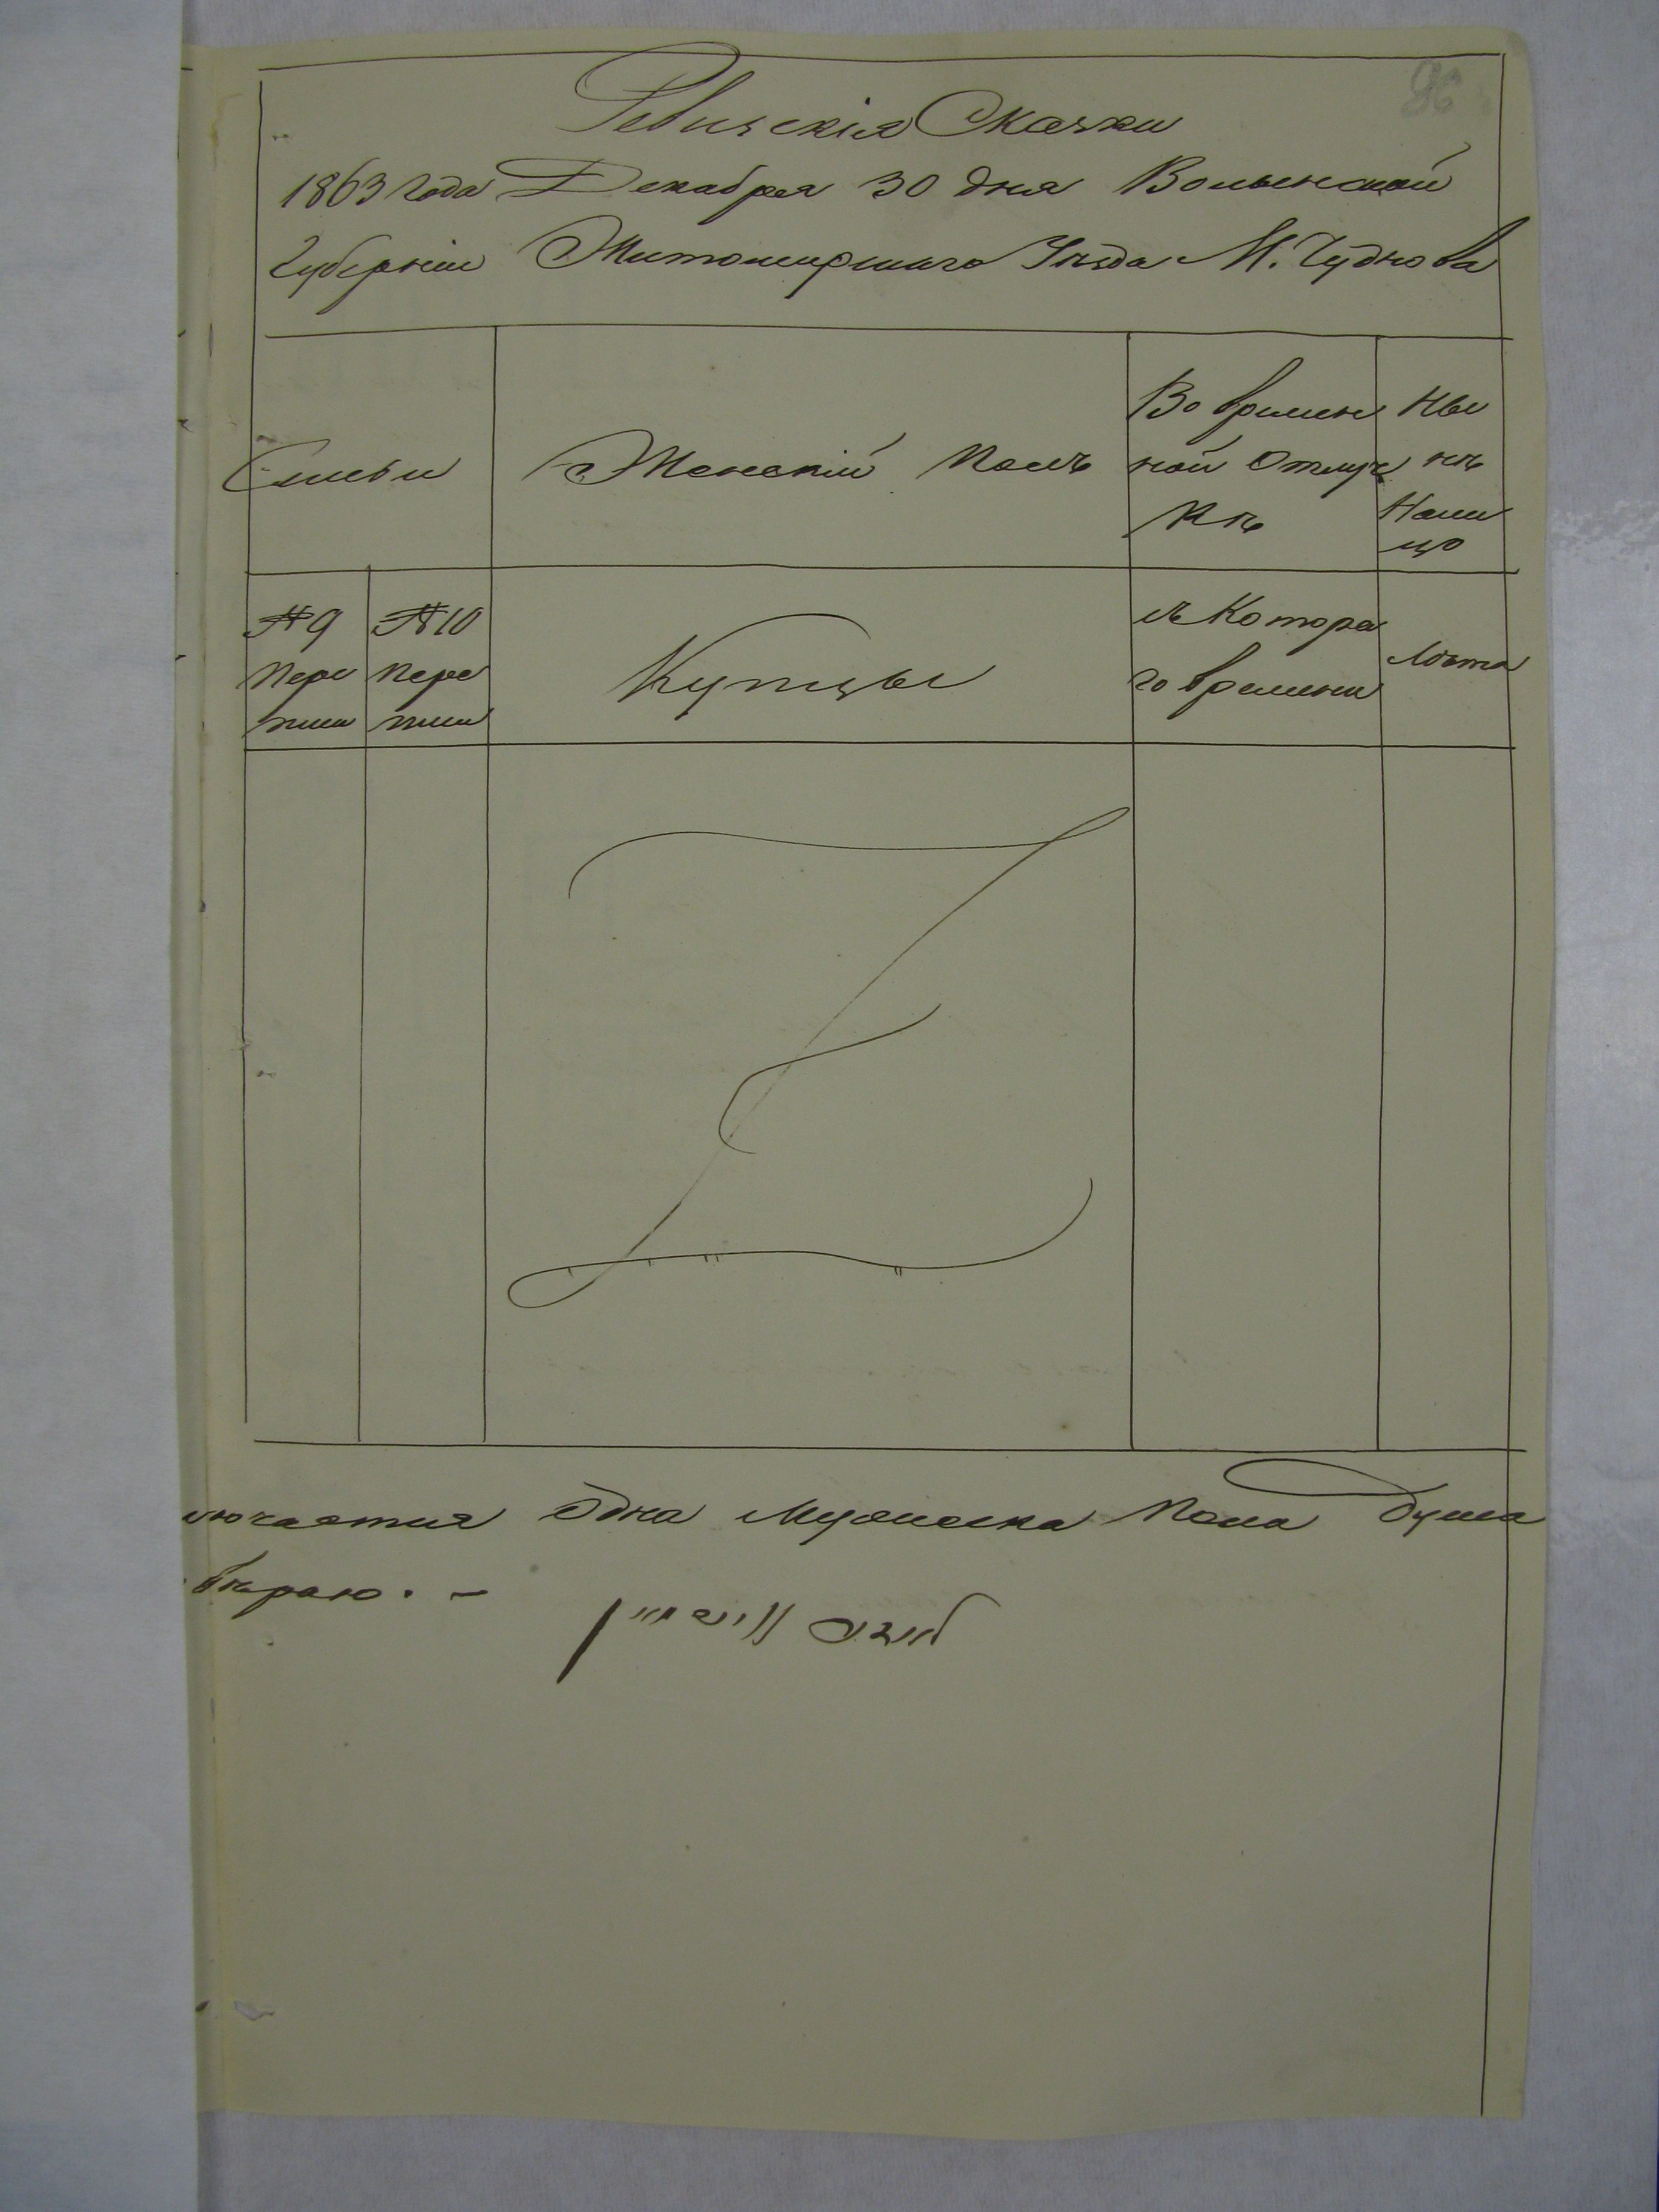 96
Ревизскія Сказки
1863 года Декабря 30 дня Волынской
Губерніи Житомирскаго Уѣзда М. Чуднова
Семьи
Женскій Полъ
Во времен
ной Отлуч
кѣ
Ны
нѣ
Нали
цо
№ 9
Пере
писи
№ 10
пере
писи
Купцы
съ Котора
го времени
Лѣта
лючается Одна Мужеска Пола душа
бираю. -